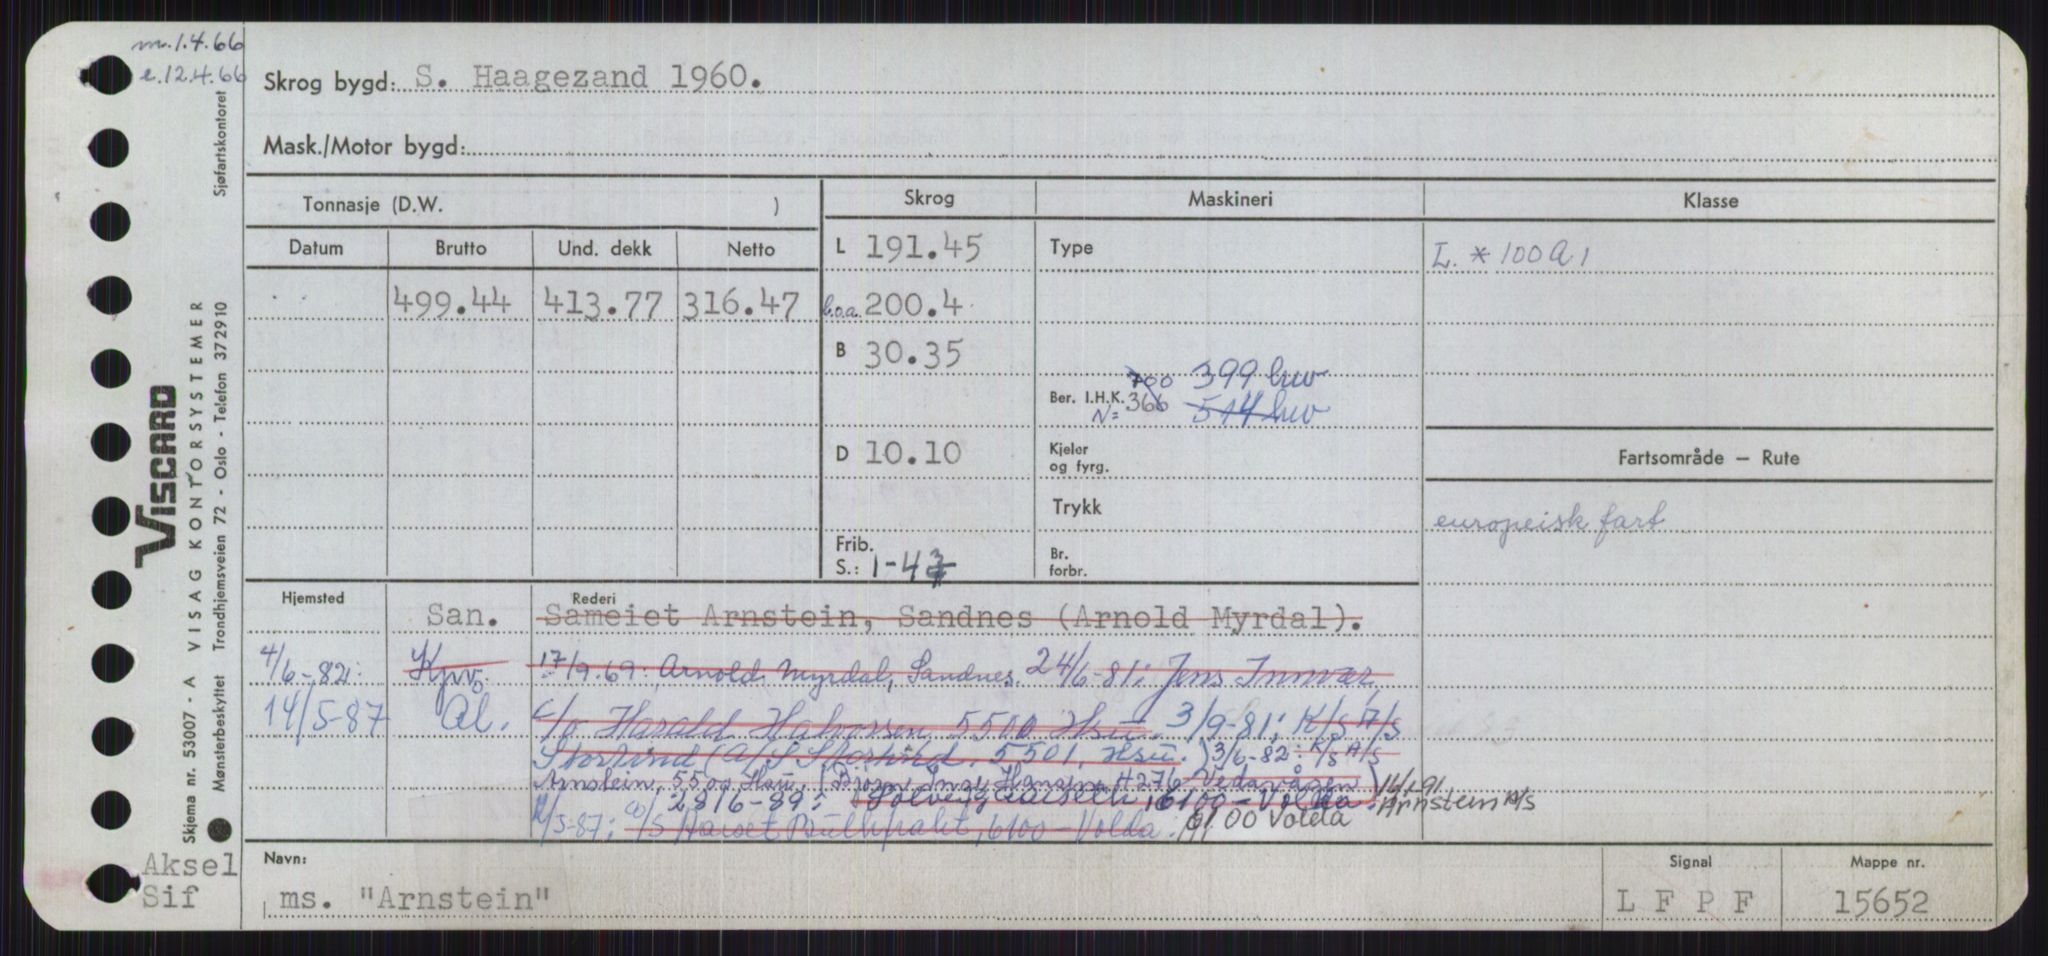 m. 1.4.66
e. 12.4.66
Skrog bygd: S. Haagezand 1960.
Mask./Motor bygd:
Tonnasje (D.W. )
Skrog
Maskineri
Klasse
Datum
Brutto
Und. dekk
Netto
L 191.45
Type
L. * 100 A 1
499.44
413.77
316.47
l.o.a. 200.4
B 30.35
700
399 hw
Ber. I.H.K.
N = 366
514 hw
D 10.10
Kjeler
og fyrg.
Fartsområde — Rute
Trykk
europeisk fart
Frib.
S.: 1-4
Br.
forbr.
Hjemsted
Rederi
San.
Sameiet Arnstein, Sandnes (Arnold Myrdal).
4/6-82: Kprv.
17/9.69: Arnold Myrdal, Sandnes. 24/6-81: Jens Innvær,
14/5-87 Al.
c/o Harald Halvorsen, 5500 Hsu. 3/9-81: K/S A/S
Storlind (A/S Storlind, 5501, Hsu.) 3/6-82: K/S A/S
Arnstein, 5500 Hsu, (Bjørn Inge Hansen, 4276 Vedavågen)
28/6-89: Solveig Aarseth, 6100 - Volda. 16/1.91
Arnstein A/S
6100 Volda
/5-87: Bulkfrakt, 6100 - Volda.
Navn:
ms. "Arnstein"
Signal
L F P F
Mappe nr.
15652
Aksel
Sif
Sjøfartskontoret
VISCARD
VISAG KONTORSYSTEMER
Skjema nr. 53007 - A
Mønsterbeskyttet Trondhjemsveien 72 - Oslo - Telefon 372910